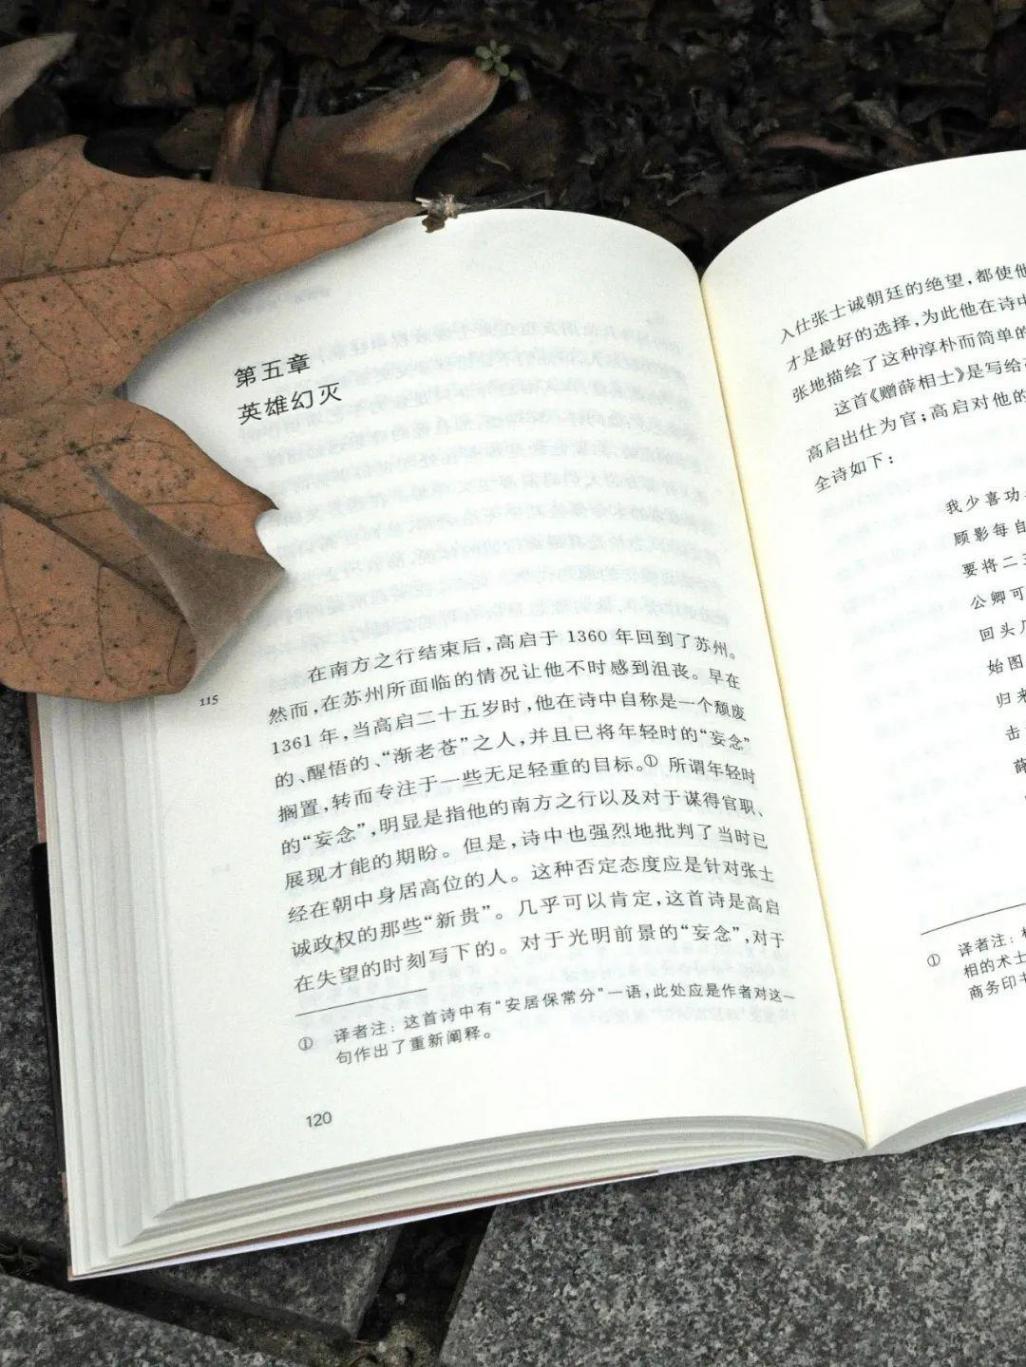 第五章
英雄幻灭
115
在南方之行结束后，高启于 1360 年回到了苏州。
然而，在苏州所面临的情况让他不时感到沮丧。早在
1361 年，当高启二十五岁时，他在诗中自称是一个颓废
的、醒悟的、“渐老苍”之人，并且已将年轻时的“妄念”
搁置，转而专注于一些无足轻重的目标。① 所谓年轻时
的“妄念”，明显是指他的南方之行以及对于谋得官职、
展现才能的期盼。但是，诗中也强烈地批判了当时已
经在朝中身居高位的人。这种否定态度应是针对张士
诚政权的那些“新贵”。几乎可以肯定，这首诗是高启
在失望的时刻写下的。对于光明前景的“妄念”，对于
① 译者注：这首诗中有“安居保常分”一语，此处应是作者对这一
句作出了重新阐释。
120
入仕张士诚朝廷的绝望，都使他
才是最好的选择，为此他在诗中
张地描绘了这种淳朴而简单的
这首《赠薛相士》是写给
高启出仕为官；高启对他的
全诗如下：
我少喜功
顾影每自
要将二三
公卿可
回头几
始图
归来
击
薛
① 译者注：相
相的术士
商务印书